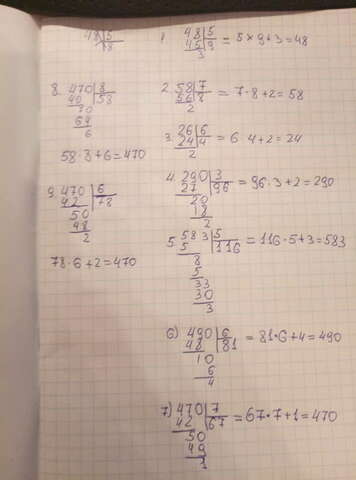 48|5
18
1. 48|5 = 5×9+3=48
45|9
3
2. 58|7 = 7·8+2=58
56|8
2
3. 26|6 = 6 4+2=24
24|4
2
4. 290|3 = 96·3+2=290
27|96
20
18
2
5. 583|5 = 116·5+3=583
5|116
8
5
33
30
3
6) 490|6 = 81·6+4=490
48|81
10
6
4
7) 470|7 = 67·7+1=470
42|67
50
49
1
8. 470|8
40|58
70
64
6
58·3+6=470
9. 470|6
42|78
50
48
2
78·6+2=470